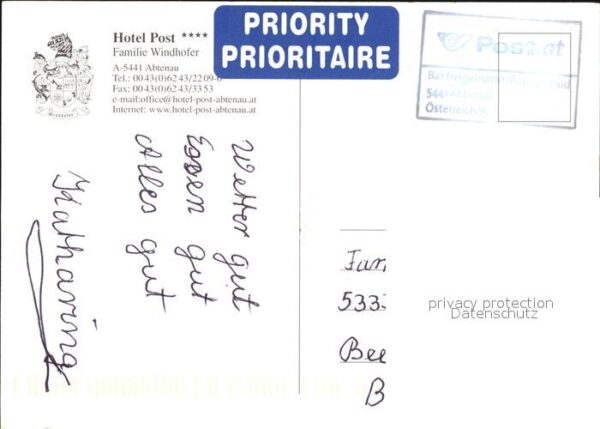 Hotel Post ****
Familie Windhofer
A-5441 Abtenau
Tel.: 0043(0)6243/2209-0
Fax: 0043(0)6243/3353
e-mail:office@hotel-post-abtenau.at
Internet: www.hotel-post-abtenau.at
PRIORITY
PRIORITAIRE
Post.at
Bar freigemacht/Postage paid
5441 Abtenau
Österreich/
Wetter gut
Essen gut
Alles gut
Katharina
Fam
533
Bee
B
privacy protection
Datenschutz